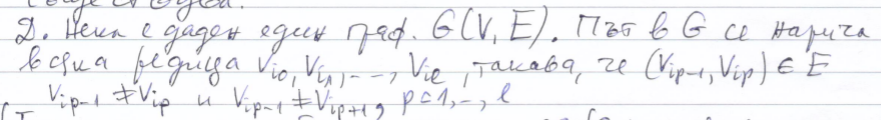 Д. Нека е даден един граф. G(V, E). Път в G се нарича
всяка редица Vi0, Vi1, --, Vil, такава, че (Vip-1, Vip) ∈ E
Vip-1 ≠ Vip и Vip-1 ≠ Vip+1, p=1,-, l